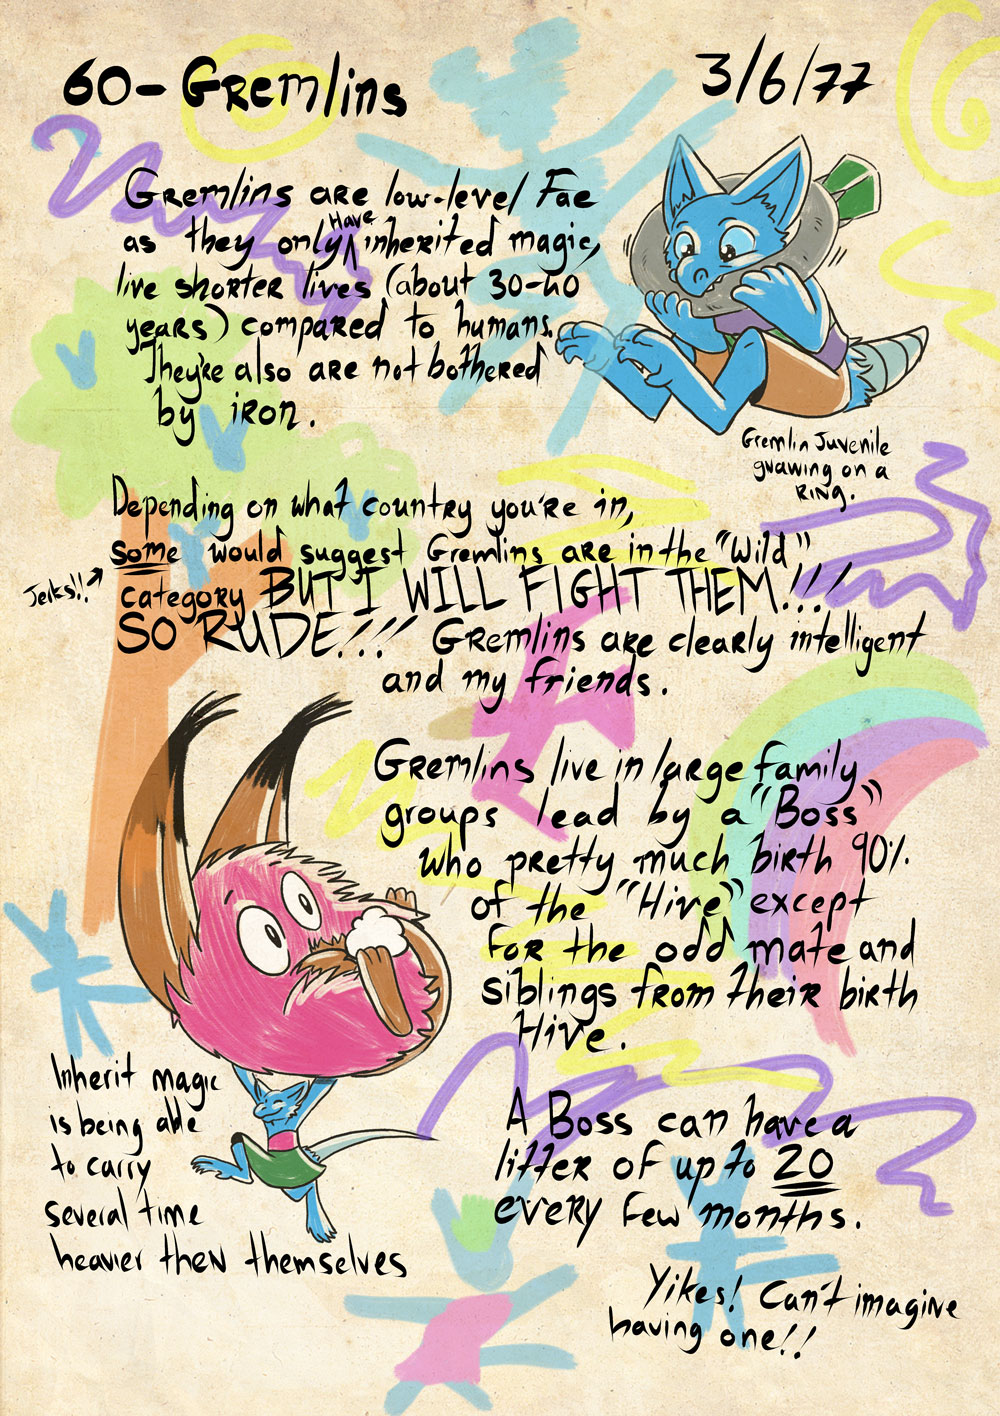 60- Gremlins
3/6/77
Gremlins are low-level Fae
as they only ^Have inherited magic,
live shorter lives (about 30-40
years) compared to humans.
They're also are not bothered
by iron.
Gremlin Juvenile
gnawing on a
RING.
Depending on what country you're in,
some would suggest Gremlins are in the "Wild"
Jerks!!
category BUT I WILL FIGHT THEM!!!
SO RUDE!!! Gremlins are clearly intelligent
and my friends.
Gremlins live in large family
groups lead by a "Boss"
who pretty much birth 90%
of the "Hive" except
for the odd mate and
siblings from their birth
Hive.
Inherit magic
is being able
to carry
several time
heavier then themselves
A Boss can have a
litter of up to 20
every few months.
Yikes! Can't imagine
having one!!